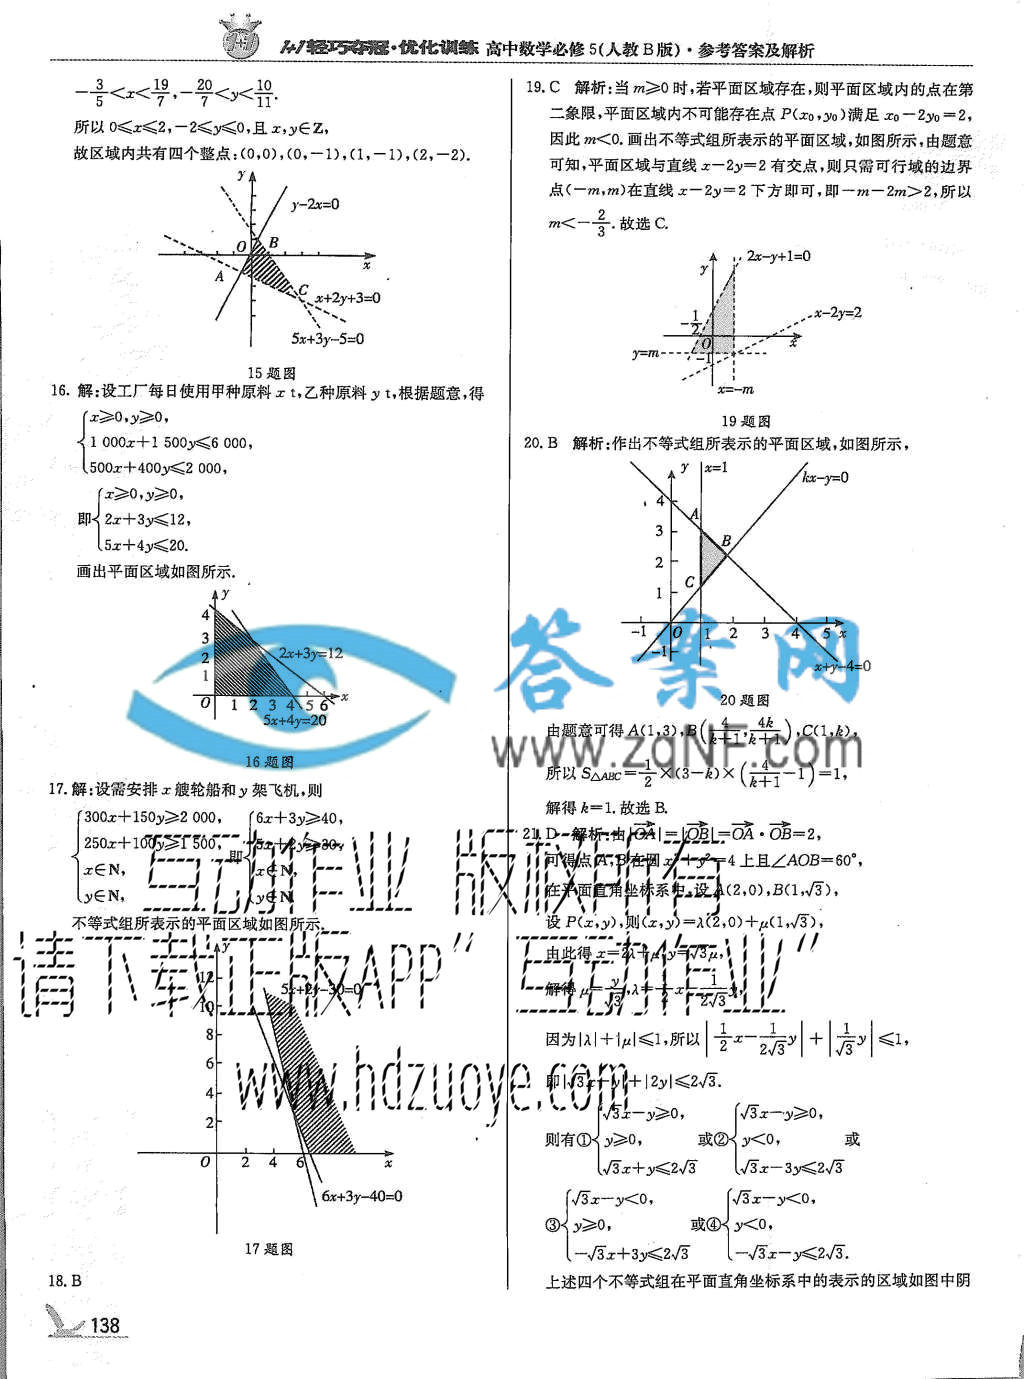 1+1轻巧夺冠·优化训练 高中数学必修5(人教B版)·参考答案及解析
-3/5<x<19/7,-20/7<y<10/11.
所以0≤x≤2,-2≤y≤0,且x,y∈Z,
故区域内共有四个整点:(0,0),(0,-1),(1,-1),(2,-2).
y
y-2x=0
O B
x
A
C
x+2y+3=0
5x+3y-5=0
15题图
16. 解:设工厂每日使用甲种原料x t,乙种原料y t,根据题意,得
x≥0,y≥0,
1 000x+1 500y≤6 000,
500x+400y≤2 000,
x≥0,y≥0,
即 2x+3y≤12,
5x+4y≤20.
画出平面区域如图所示.
y
4
3
2
1
2x+3y=12
O 1 2 3 4 5 6 x
5x+4y=20
16题图
17. 解:设需安排x艘轮船和y架飞机,则
300x+150y≥2 000, 6x+3y≥40,
250x+100y≥1 500, 即 5x+2y≥30,
x∈N, x∈N,
y∈N, y∈N.
不等式组所表示的平面区域如图所示.
y
12
10
8
6
4
2
5x+2y-30=0
O 2 4 6 x
6x+3y-40=0
17题图
18. B
138
19. C 解析:当m≥0时,若平面区域存在,则平面区域内的点在第
二象限,平面区域内不可能存在点P(x₀,y₀)满足x₀-2y₀=2,
因此m<0.画出不等式组所表示的平面区域,如图所示,由题意
可知,平面区域与直线x-2y=2有交点,则只需可行域的边界
点(-m,m)在直线x-2y=2下方即可,即-m-2m>2,所以
m<-2/3.故选C.
y
2x-y+1=0
x-2y=2
-1/2
O
x
y=m
-1
x=-m
19题图
20. B 解析:作出不等式组所表示的平面区域,如图所示,
y x=1
kx-y=0
4
A
3
B
2
C
1
-1 O 1 2 3 4 5 x
-1
x+y-4=0
20题图
由题意可得A(1,3),B(4/(k+1),4k/(k+1)),C(1,k),
所以S△ABC=1/2×(3-k)×(4/(k+1)-1)=1,
解得k=1.故选B.
21. D 解析:由|OA|=|OB|=OA·OB=2,
可得点A,B在圆x²+y²=4上且∠AOB=60°,
在平面直角坐标系中,设A(2,0),B(1,√3),
设P(x,y),则(x,y)=λ(2,0)+μ(1,√3),
由此得x=2λ+μ,y=√3μ,
解得μ=y/√3,λ=1/2x-1/(2√3)y,
因为|λ|+|μ|≤1,所以|1/2x-1/(2√3)y|+|1/√3y|≤1,
即|√3x-y|+|2y|≤2√3.
√3x-y≥0, √3x-y≥0,
则有① y≥0, 或② y<0, 或
√3x+y≤2√3 √3x-3y≤2√3
√3x-y<0, √3x-y<0,
③ y≥0, 或④ y<0,
-√3x+3y≤2√3 -√3x-y≤2√3.
上述四个不等式组在平面直角坐标系中的表示的区域如图中阴
答案网
www.zqNF.com
互动作业 版权所有
请下载正版APP“互动作业”
www.hdzuoye.com